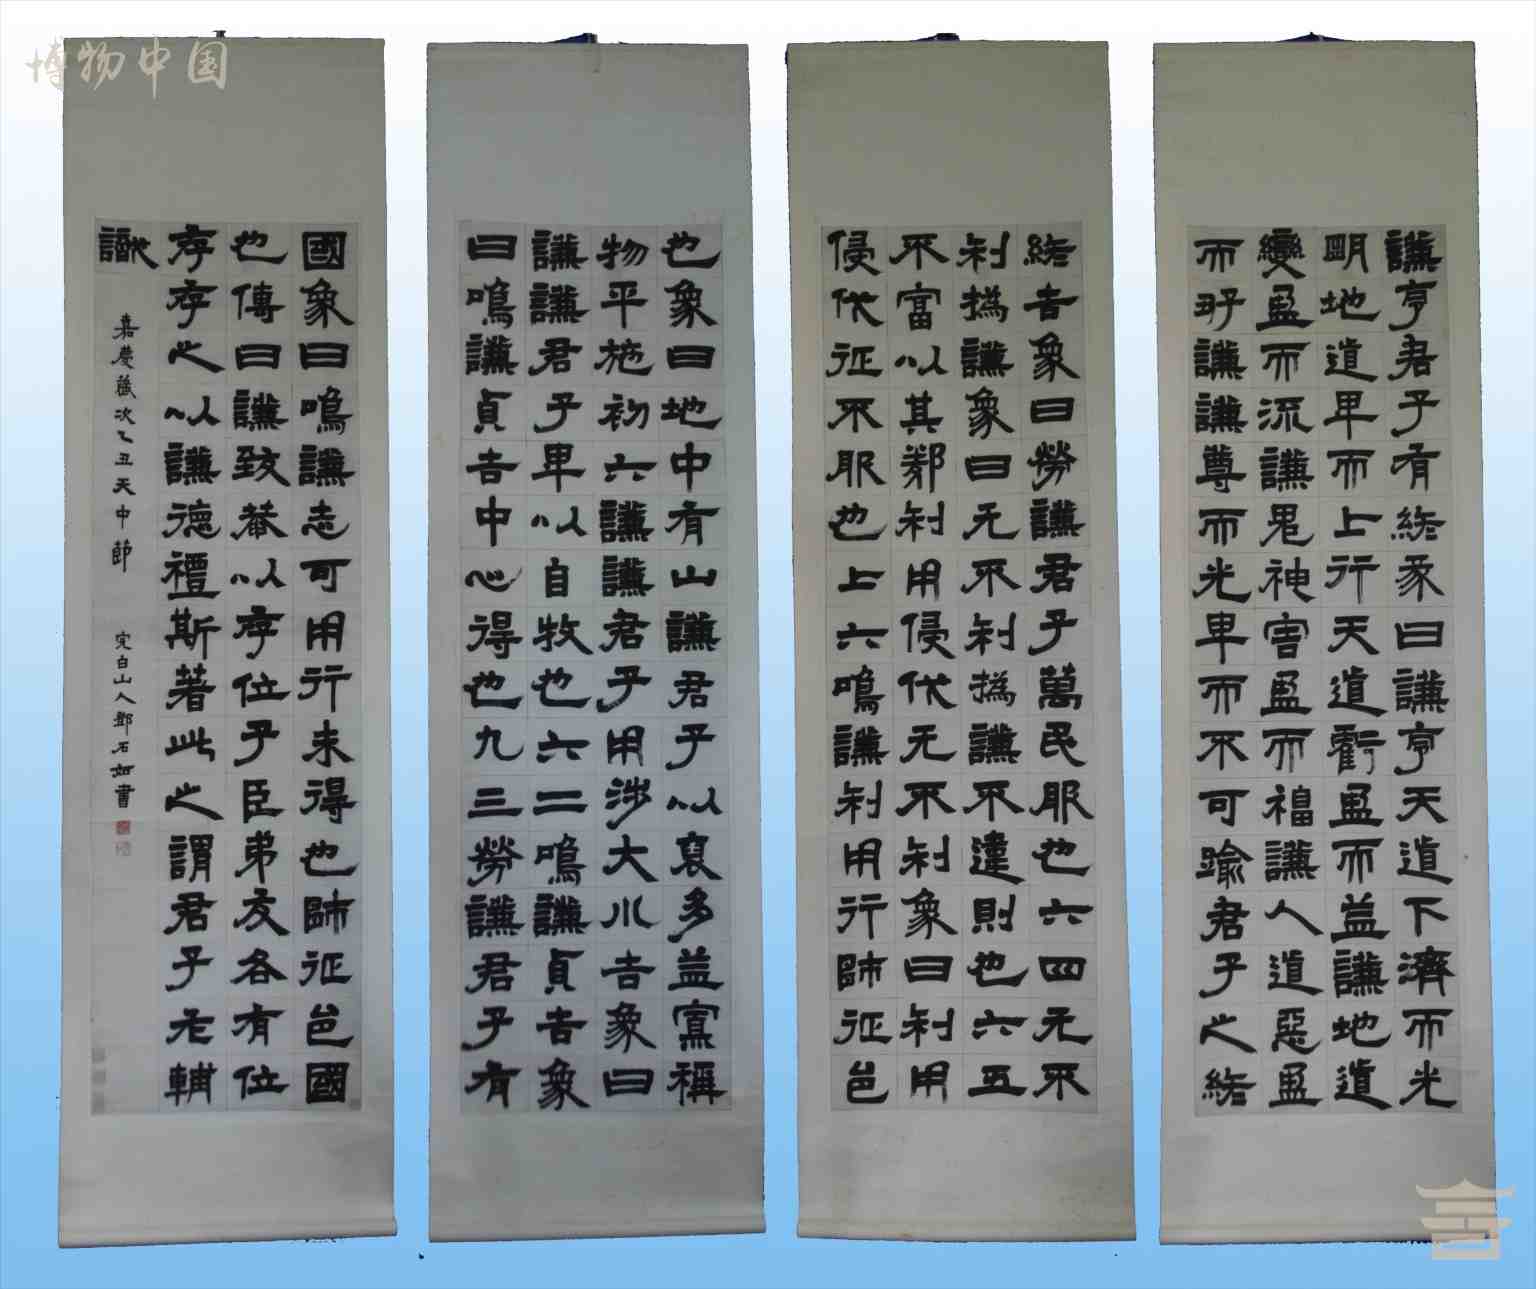 博物中国
謙亨君子有終彖曰謙亨天道下濟而光
明地道卑而上行天道虧盈而益謙地道
變盈而流謙鬼神害盈而福謙人道惡盈
而好謙謙尊而光卑而不可踰君子之終
也象曰地中有山謙君子以裒多益寡稱
物平施初六謙謙君子用涉大川吉象曰
謙謙君子卑以自牧也六二鳴謙貞吉象
曰鳴謙貞吉中心得也九三勞謙君子有
終吉象曰勞謙君子萬民服也六四无不
利撝謙象曰无不利撝謙不違則也六五
不富以其鄰利用侵伐无不利象曰利用
侵伐征不服也上六鳴謙利用行師征邑
國象曰鳴謙志可用行未得也師征邑國
也傳曰謙致恭以存位子臣弟友各有位
存存之以謙德禮斯著此之謂君子輔
嘉慶歲次乙丑天中節 完白山人鄧石如書